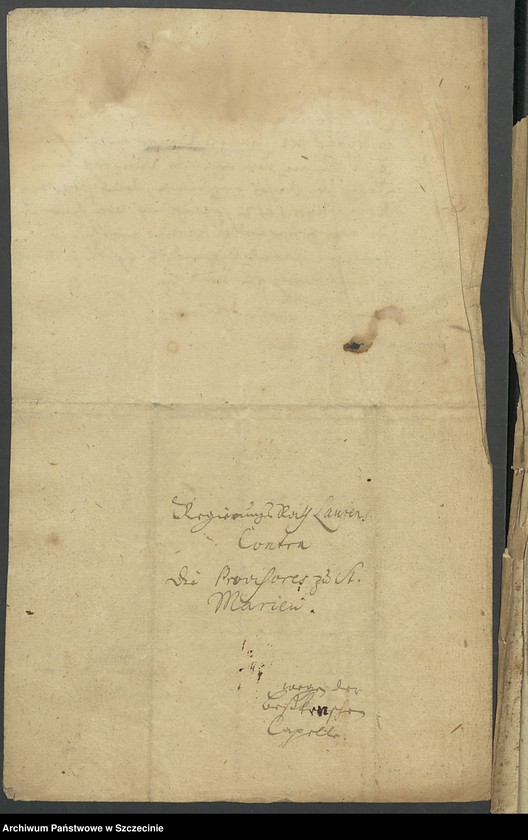 Regierungs Rath Lauren
Contra
Die Provisores zu St.
Marien.
wegen der
Capelle.
Archiwum Państwowe w Szczecinie